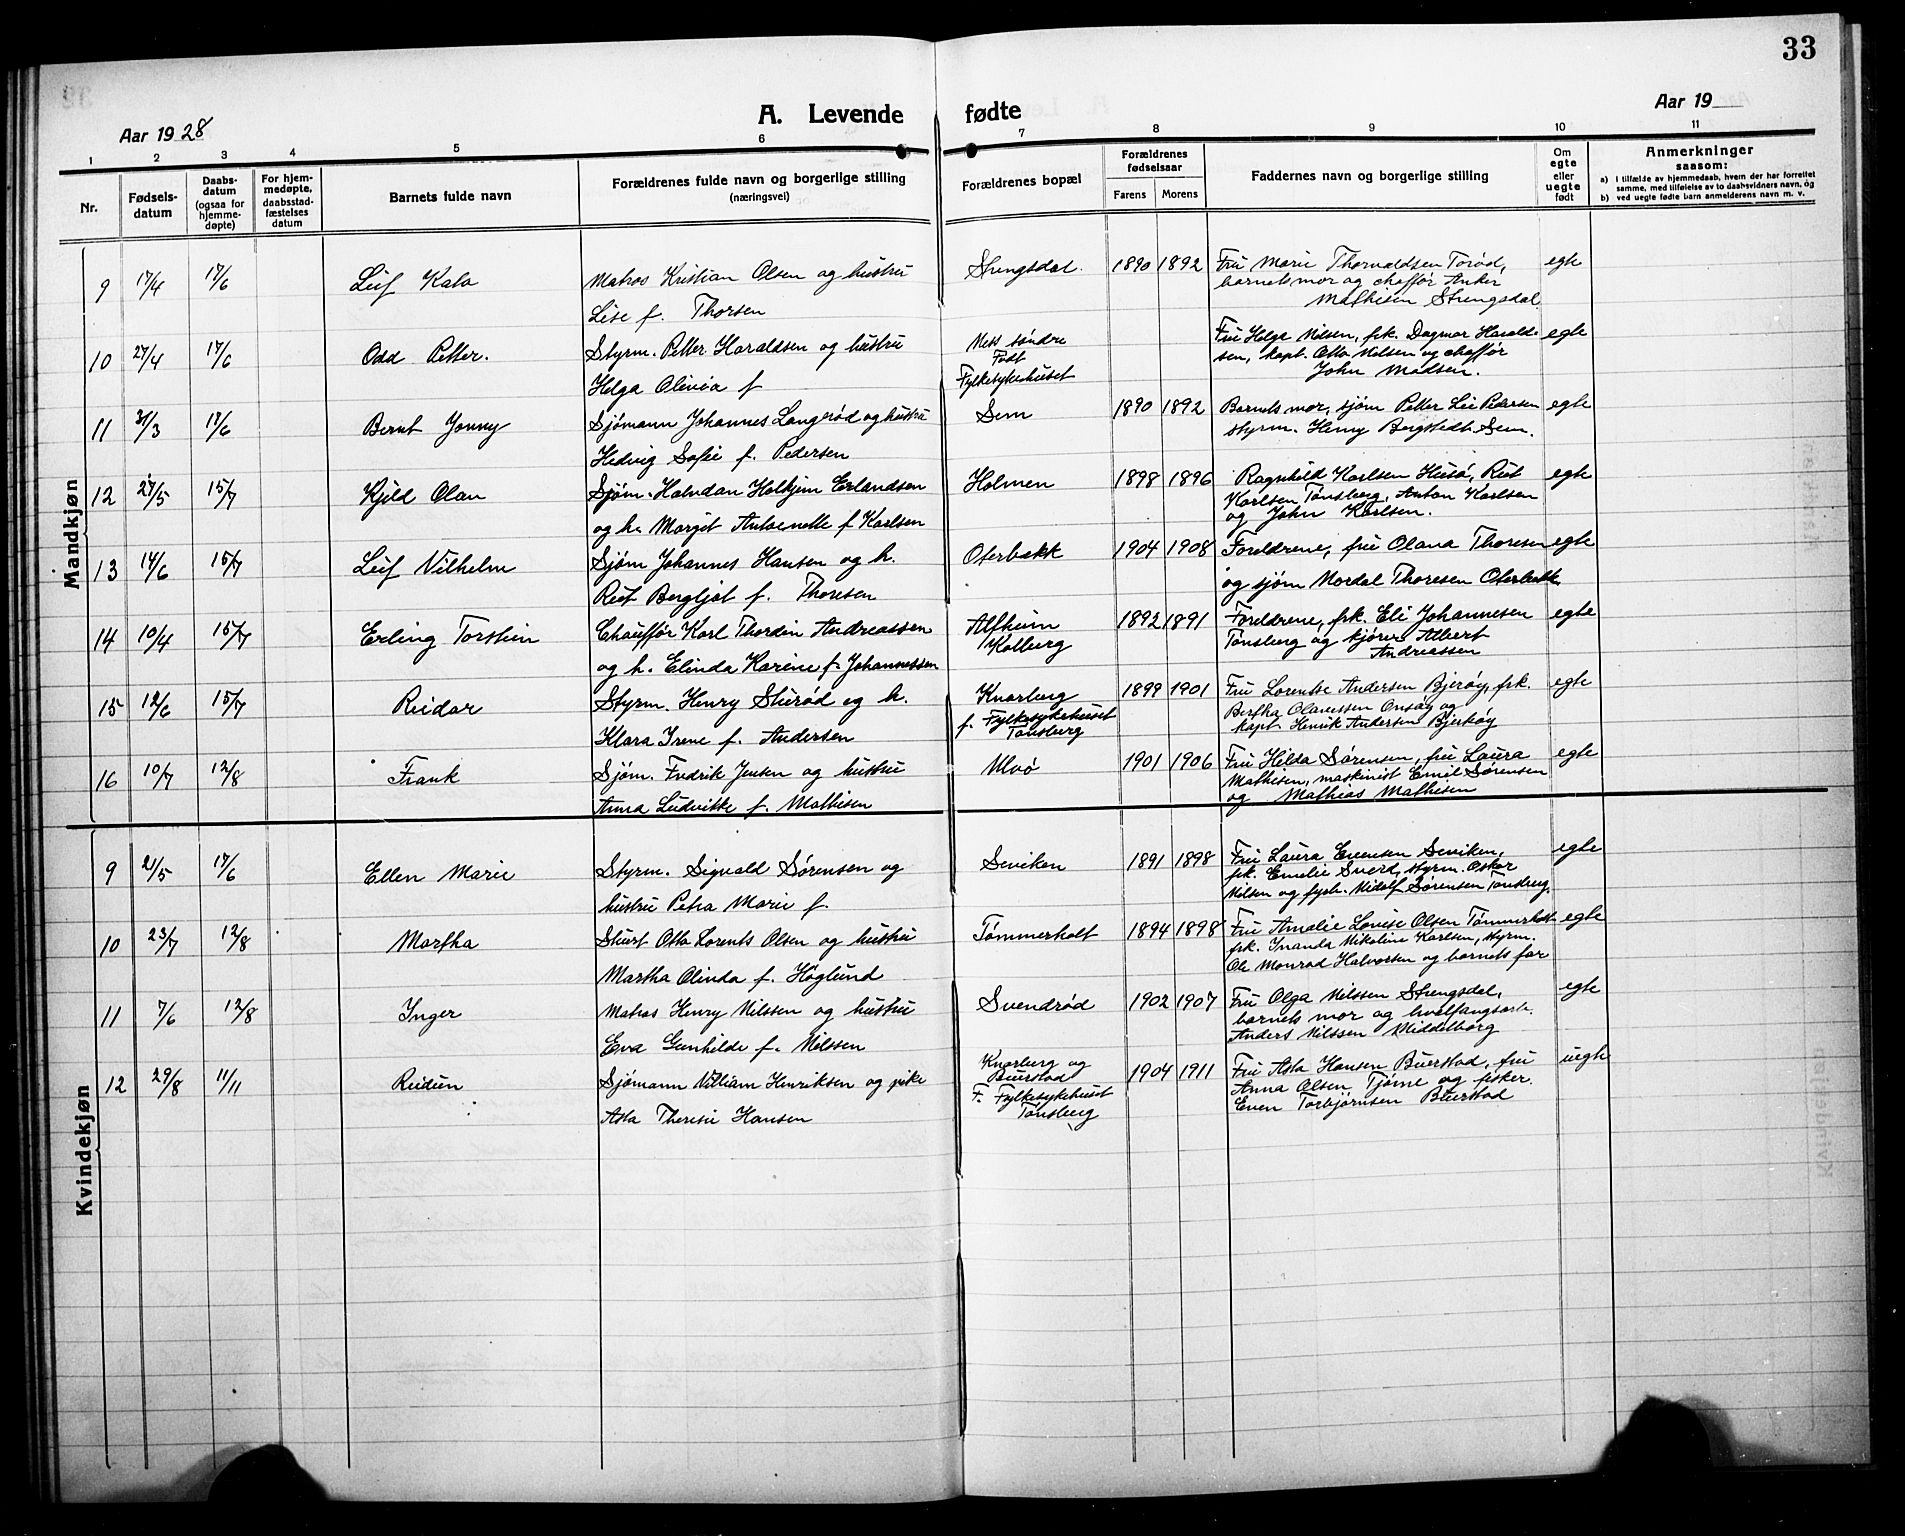 33
Aar 1928
A. Levende fødte
Aar 19
1 2 3 4 5 6 7 8 9 10 11
Nr.
Fødsels-
datum
Daabs-
datum
(ogsaa for
hjemme-
døpte)
For hjem-
medøpte,
daabsstad-
fæstelses
datum
Barnets fulde navn
Forældrenes fulde navn og borgerlige stilling
(næringsvei)
Forældrenes bopæl
Forældrenes
fødselsaar
Farens Morens
Faddernes navn og borgerlige stilling
Om
egte
eller
uegte
født
Anmerkninger
saasom:
a) i tilfælde av hjemmedaab, hvem der har forrettet
samme, med tilføielse av to daabsvidners navn, og
b) ved uegte fødte barn anmelderens navn m. v.
Mandkjøn
9 17/4 17/6 Leif Kato Matros Kristian Olsen og hustru Strengsdal. 1890 1892 Fru Marie Thorvaldsen Torød, egte
Lise f. Thorsen barnets mor og chaffør Anker
Mathisen Strengsdal
10 27/4 17/6 Odd Petter. Styrm. Petter Haraldsen og hustru Ness søndre Fru Helga Nilsen, frk. Dagmar Harald- egte
Født sen, kapt. Otto Nilsen og chaffør
Helga Olivia f Fylkesykehuset John Madsen.
11 31/3 17/6 Bernt Jonny Sjømann Johannes Langerød og hustru Sem 1890 1892 Barnets mor, sjøm Petter Lie Pedersen egte
Hedvig Sofie f. Pedersen styrm. Henry Bergstedt. Sem.
12 27/5 15/7 Kjeld Olan Sjøm. Halvdan Holkjem Erlandsen Holmen 1898 1896 Ragnhild Karlsen Husø, Rut egte
og h. Margit Antoinette f Karlsen Karlsen Tønsberg, Anton Karlsen
og John Karlsen.
13 14/6 15/7 Leif Vilhelm Sjøm Johannes Hansen og h. Oterbekk 1904 1908 Foreldrene, fru Olava Thoresen egte
Rut Bergljot f. Thoresen og sjøm Mordal Thoresen Oterbekk
14 10/4 15/7 Erling Torstein Chauffør Karl Thordin Andreassen Alfheim 1892 1891 Foreldrene, frk. Eli Johannesen egte
og h. Elinda Karine f. Johannessen Kolberg Tønsberg og kjører Albert
Andreassen
15 12/6 15/7 Reidar Styrm. Henry Sturød og h. Knarberg 1899 1901 Fru Lorentse Andersen Bjerøy, frk. egte
Klara Irene f. Andersen f. Fylkesykehuset Bertha Olavessen Onsøy og
Tønsberg kapt. Henrik Andersen Bjerkøy
16 10/7 12/8 Frank Sjøm. Fredrik Jensen og hustru Ulvø 1901 1906 Fru Hilda Sørensen, fru Laura egte
Anna Ludvikke f. Mathisen Mathisen, maskinist Emil Sørensen
og Mathias Mathisen
Kvindekjøn
9 21/5 17/6 Ellen Marie Styrm. Sigvald Sørensen og Seviken 1891 1898 Fru Laura Evensen Seviken, egte
frk. Emelie Sverd, styrm. Oskar
hustru Petra Marie f. Nilsen og fyrb. Sørensen Tønsberg.
10 23/7 12/8 Martha Stuert Otto Lorents Olsen og hustru Tømmerholt 1894 1898 Fru Amalie Lovise Olsen Tømmerholt egte
frk. Inanda Nikoline Karlsen, styrm.
Martha Olinda f. Höglund Ole Monrad Halvorsen og barnets far
11 7/6 12/8 Inger Matros Henry Nilssen og hustru Svendrød 1902 1907 Fru Olga Nilssen Strengsdal, egte
barnets mor og hvalfangsarb.
Eva Gunhilde f. Nilssen Anders Nilssen Middelborg
12 29/8 11/11 Reidun Sjømann William Henriksen og pike Knarberg og 1904 1911 Fru Asta Hansen Buerstad, fru uegte
Buerstad Anna Olsen Tjøme og fisker
Asta Therese Hansen F. Fylkesykehuset Even Torbjørnsen Buerstad
Tønsberg